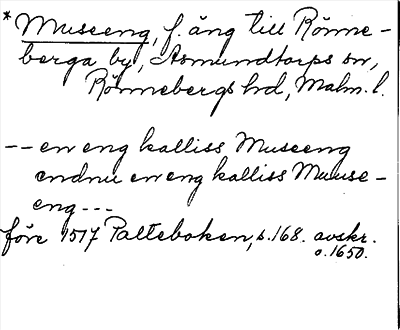 * Museeng, f. äng till Rönne-
berga by, Asmundtorps sn,
Rönnebergs hd, Malm. l.
-- en eng kalliss Museeng
endnu en eng kalliss Muuse-
eng ---
före 1517 Palteboken, s. 168. avskr.
o. 1650.